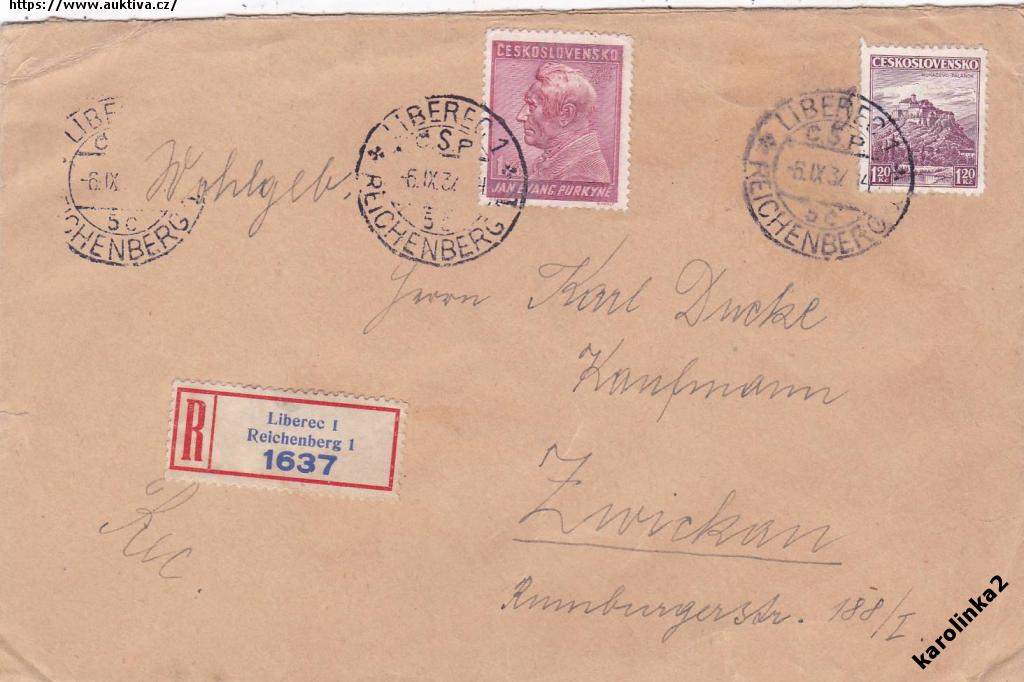 https://www.auktiva.cz/
ČESKOSLOVENSKO
JAN EVANG. PURKYNĚ
ČESKOSLOVENSKO
MUKAČEVO PALANOK
1.20 Kč 1.20 Kč
LIBE
-6.IX
5c
REICHENBERG
LIBEREC 1
Č.S.P.
-6.IX.37
5c
REICHENBERG
LIBEREC 1
Č.S.P.
-6.IX.37
5c
REICHENBERG
Wohlgeb.
Herrn Karl Ducke
Kaufmann
Zwickau
Rumburgerstr. 188/I
R
Liberec 1
Reichenberg 1
1637
Rec.
karolinka2